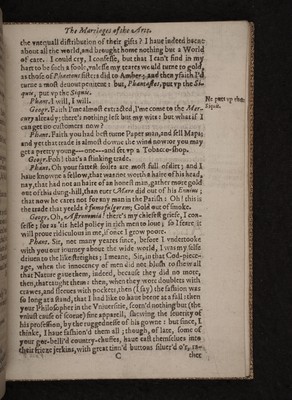 The Marriages of the Arts.
the vnequall distribution of their gifts? I haue indeed beene
about all the world, and brought home nothing but a World
of care. I could cry, I confesse, but that I can't find in my
hart to be such a foole, vnlesse my teares would turne to gold,
as those of Phaetons sisters did to Amber; and then yfaith I'd
turne a most deuout penitent: but, Phantastes, put vp the Si-
quis, put vp the Siquis.
Phant. I will, I will.
He puts vp the
Siquis.
Geogr. Faith I'me almost extracted, I'me come to the Mer-
cury already; there's nothing left but my wits: but what if I
can get no customers now?
Phant. Faith you had best turne Paper man, and sell Maps;
and yet that trade is almost downe the wind now: or you may
get a pretty young ---- one---- and set vp a Tobacco-shop.
Geogr. Foh! that's a stinking trade.
Phant. Oh your fattest soiles are most full of dirt; and I
haue knowne a fellow, that was not worth a haire of his head,
nay, that had not an haire of an honest man, gather more gold
out of this dung-hill, than euer Maro did out of his Ennius;
that now he cares not for any man in the Parish: Oh! this is
the trade that yeelds è fumo fulgorem; Gold out of smoke.
Geogr. Oh, Astronomia! there's my chiefest griefe, I con-
fesse; for as 'tis held policy in rich men to loue; so I feare it
will proue ridiculous in me, if once I grow poore.
Phant. Sir, not many yeares since, before I vndertooke
with you our iourney about the wide world, I was my selfe
driuen to the like streights; I meane, Sir, in that God-piece-
age, when the innocency of men did not blush to shew all
that Nature gaue them, indeed, because they did no more,
then, that taught them: then, when they wore doublets with
crawes, and sleeues with pockets, then (I say) the fashion was
so long at a stand, that I had like to haue beene at a fall: then
your Philosopher in the Vniuersitie, scorn'd nothing but (the
vniust cause of scorne) fine apparell, shewing the seuerity of
his profession, by the ruggednesse of his gowne: but since, I
thinke, I haue fashion'd them all; though, of late, some of
your gor-bell'd country-chuffes, haue cast themselues into
their frieze ierkins, with great tinn'd buttons siluer'd o'r, ra-
C
ther